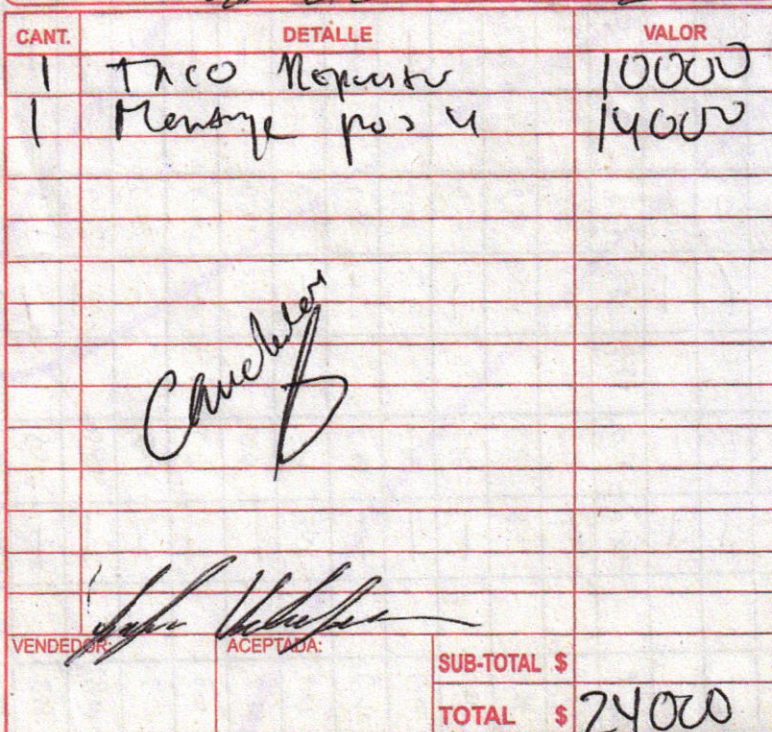 CANT. DETALLE VALOR
1 Taco Repuesto 10000
1 pos 4 14000
VENDEDOR: ACEPTADA:
SUB-TOTAL $
TOTAL $ 24000